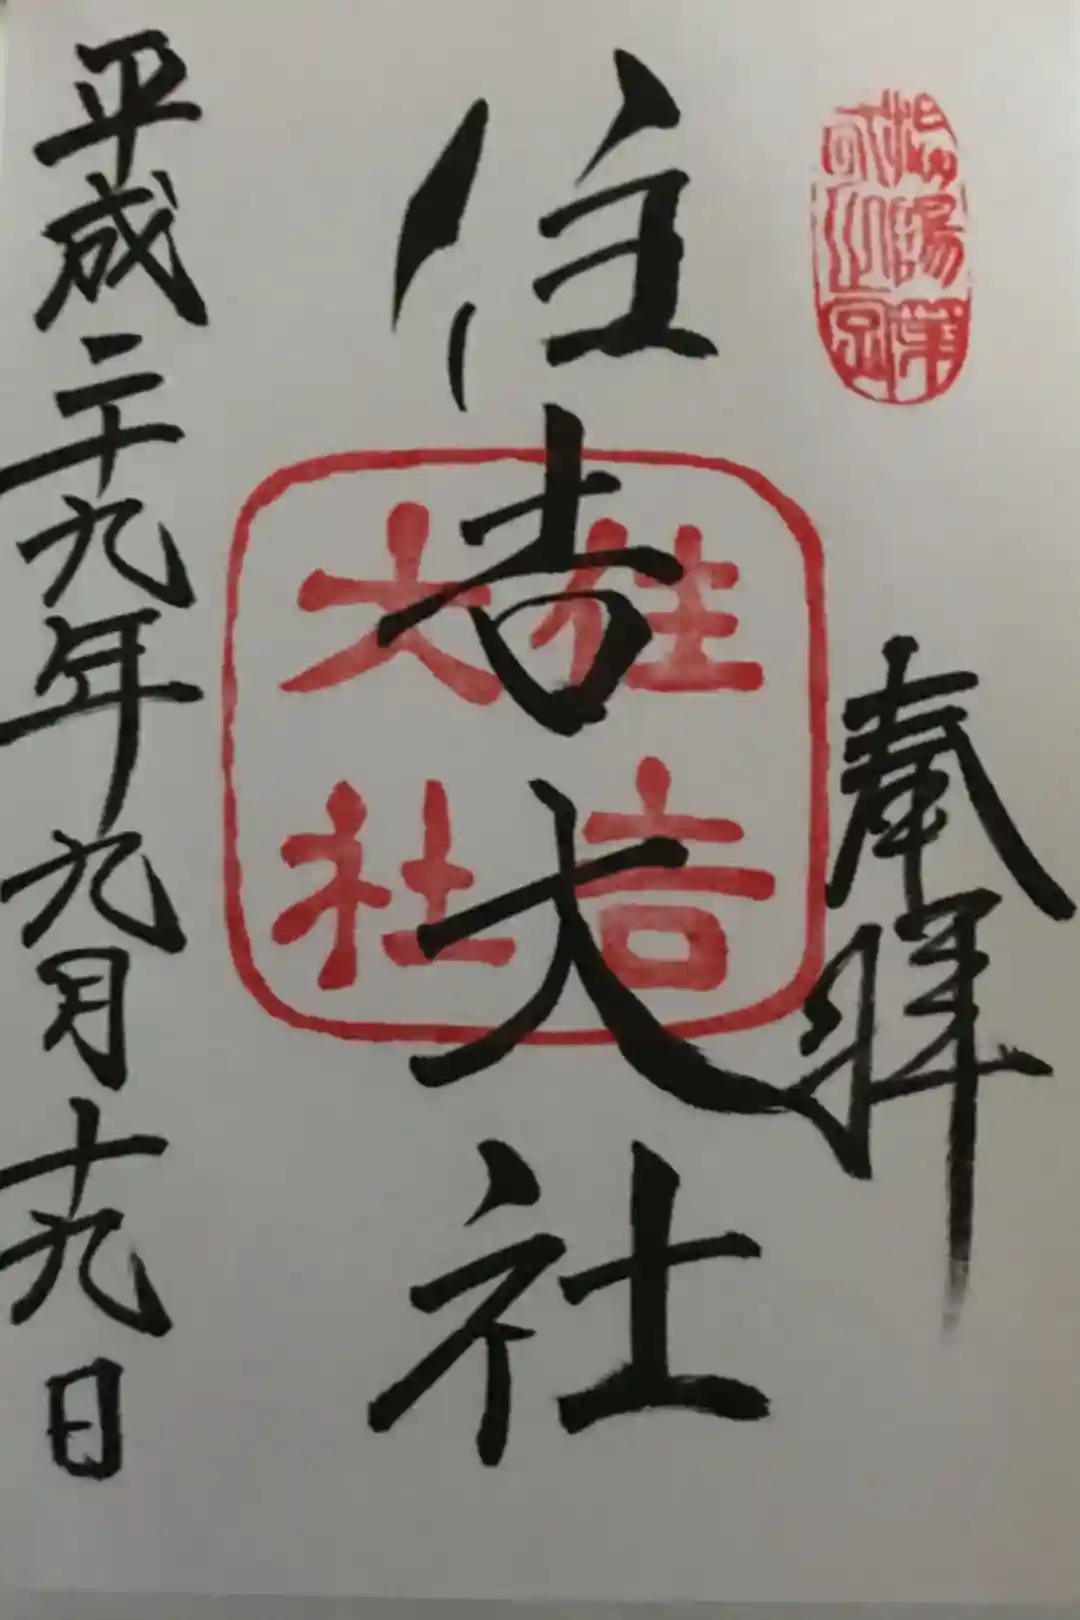 奉拝
住吉大社
住吉
大社
平成二十九年九月十九日